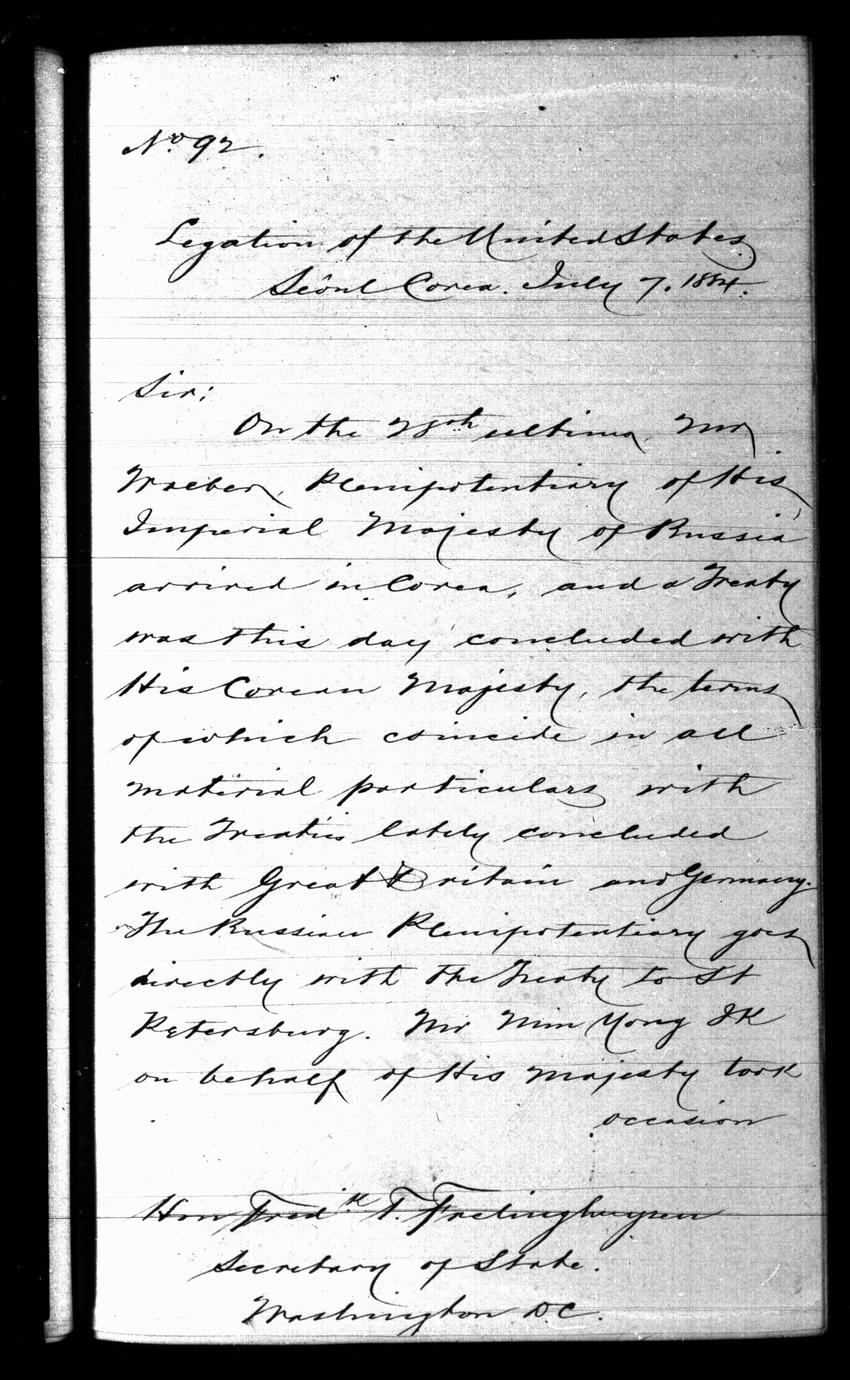 No 92.
Legation of the United States.
Séoul Corea. July 7. 1884.
Sir;
On the 28th ultimo, Mr
Waeber, Plenipotentiary of His
Imperial Majesty of Russia
arrived in Corea, and a Treaty
was this day concluded with
His Corean Majesty, the terms
of which coincide in all
material particulars with
the Treaties lately concluded
with Great Britain and Germany.
The Russian Plenipotentiary goes
directly with the Treaty to St
Petersburg. Mr Min Yong IK
on behalf of His Majesty took
occasion
Hon Fredk T. Frelinghuysen
Secretary of State.
Washington D.C.